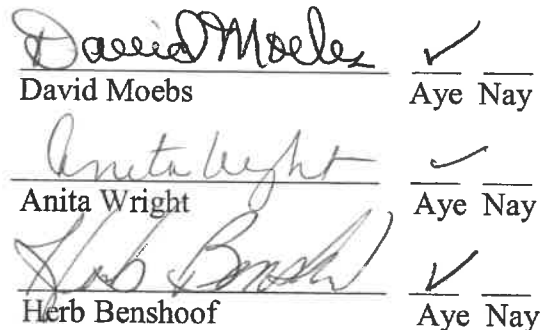 David Moebs ✓
David Moebs Aye Nay
Anita Wright ✓
Anita Wright Aye Nay
Herb Benshoof ✓
Herb Benshoof Aye Nay